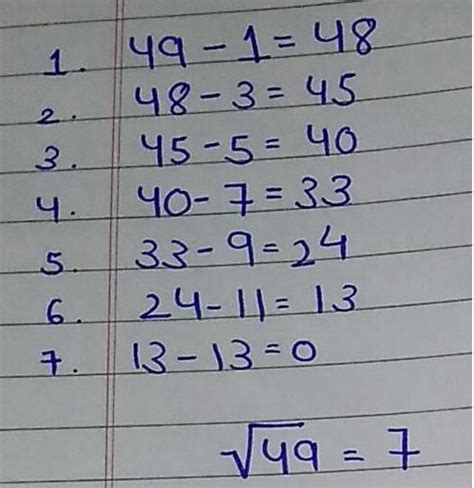 1. 49 - 1 = 48
2. 48 - 3 = 45
3. 45 - 5 = 40
4. 40 - 7 = 33
5. 33 - 9 = 24
6. 24 - 11 = 13
7. 13 - 13 = 0
√49 = 7